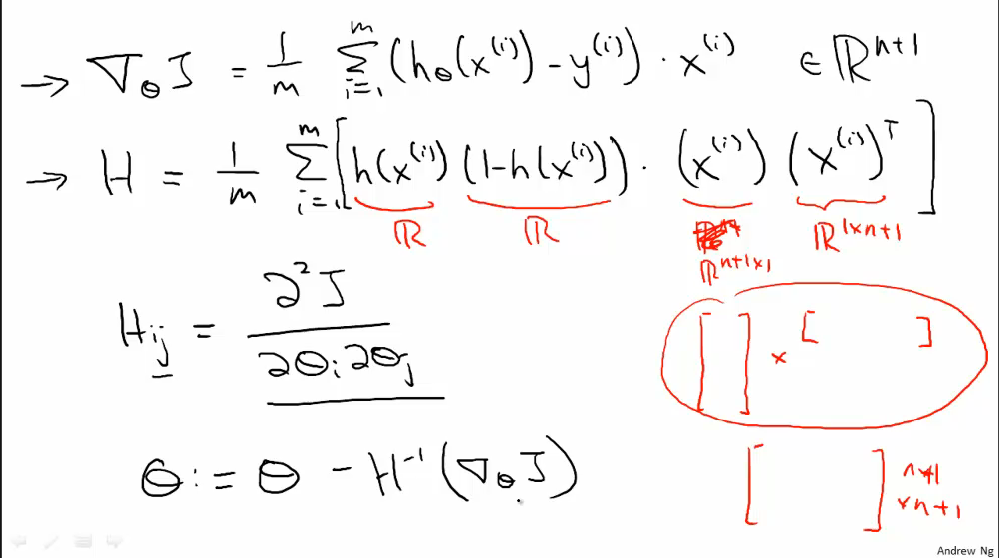 → ∇_θ J = 1/m Σ_{i=1}^{m} (h_θ(x^{(i)}) - y^{(i)}) · x^{(i)} ∈ ℝ^{n+1}
→ H = 1/m Σ_{i=1}^{m} [h(x^{(i)}) (1-h(x^{(i)})) · (x^{(i)}) (x^{(i)})^T]
ℝ ℝ ℝ^{1×n+1}
ℝ^{n+1×1}
H_{ij} = ∂²J / ∂θ_i ∂θ_j
[ ] × [ ]
θ := θ - H^{-1} (∇_θ J)
[ ] n+1
×n+1
Andrew Ng